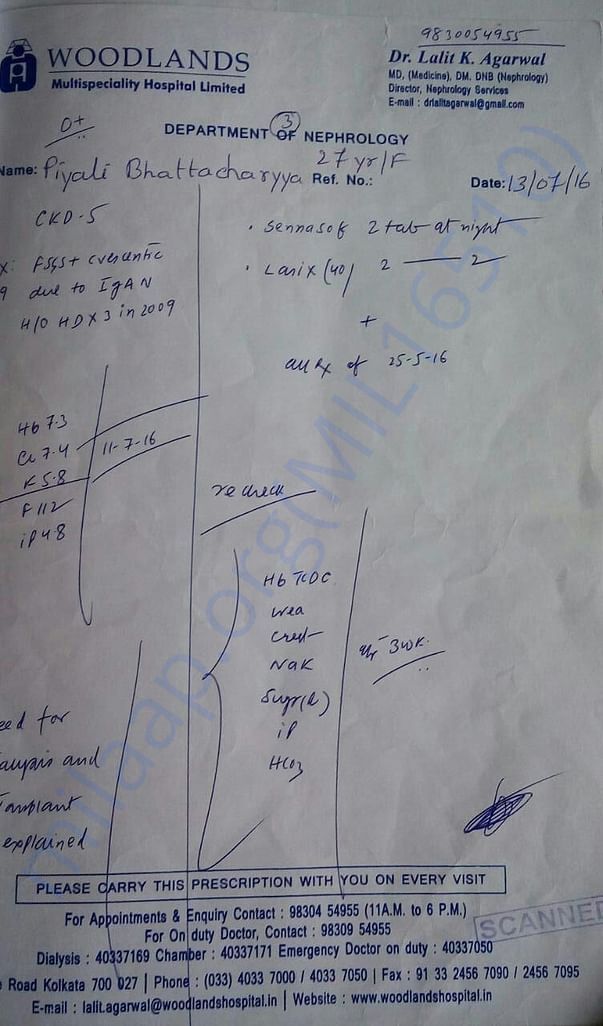 9830054955
WOODLANDS
Multispeciality Hospital Limited
Dr. Lalit K. Agarwal
MD, (Medicine), DM, DNB (Nephrology)
Director, Nephrology Services
E-mail : drlalitagarwal@gmail.com
O+
3
DEPARTMENT OF NEPHROLOGY
Name: Piyali Bhattacharyya 27 yr/F Ref. No.: Date: 13/07/16
CKD-5
FSGS +
due to IgAN
H/O HD X 3 in 2009
• Sennasof 2 tab at night
• Lasix (40) 2 — 2
+
all Rx of 25-5-16
Hb 7.3
Cr 7.4
K 5.8
11-7-16
F 112
iP 4.8
recheck
Hb TCDC
urea
creat
NaK
Sugr(R)
iP
HCO3
3 wk.
eed for
alysis and
ransplant
explained
milaap.org(MIL16510)
PLEASE CARRY THIS PRESCRIPTION WITH YOU ON EVERY VISIT
For Appointments & Enquiry Contact : 98304 54955 (11A.M. to 6 P.M.)
For On duty Doctor, Contact : 98309 54955
SCANNED
Dialysis : 40337169 Chamber : 40337171 Emergency Doctor on duty : 40337050
Road Kolkata 700 027 | Phone : (033) 4033 7000 / 4033 7050 | Fax : 91 33 2456 7090 / 2456 7095
E-mail : lalit.agarwal@woodlandshospital.in | Website : www.woodlandshospital.in